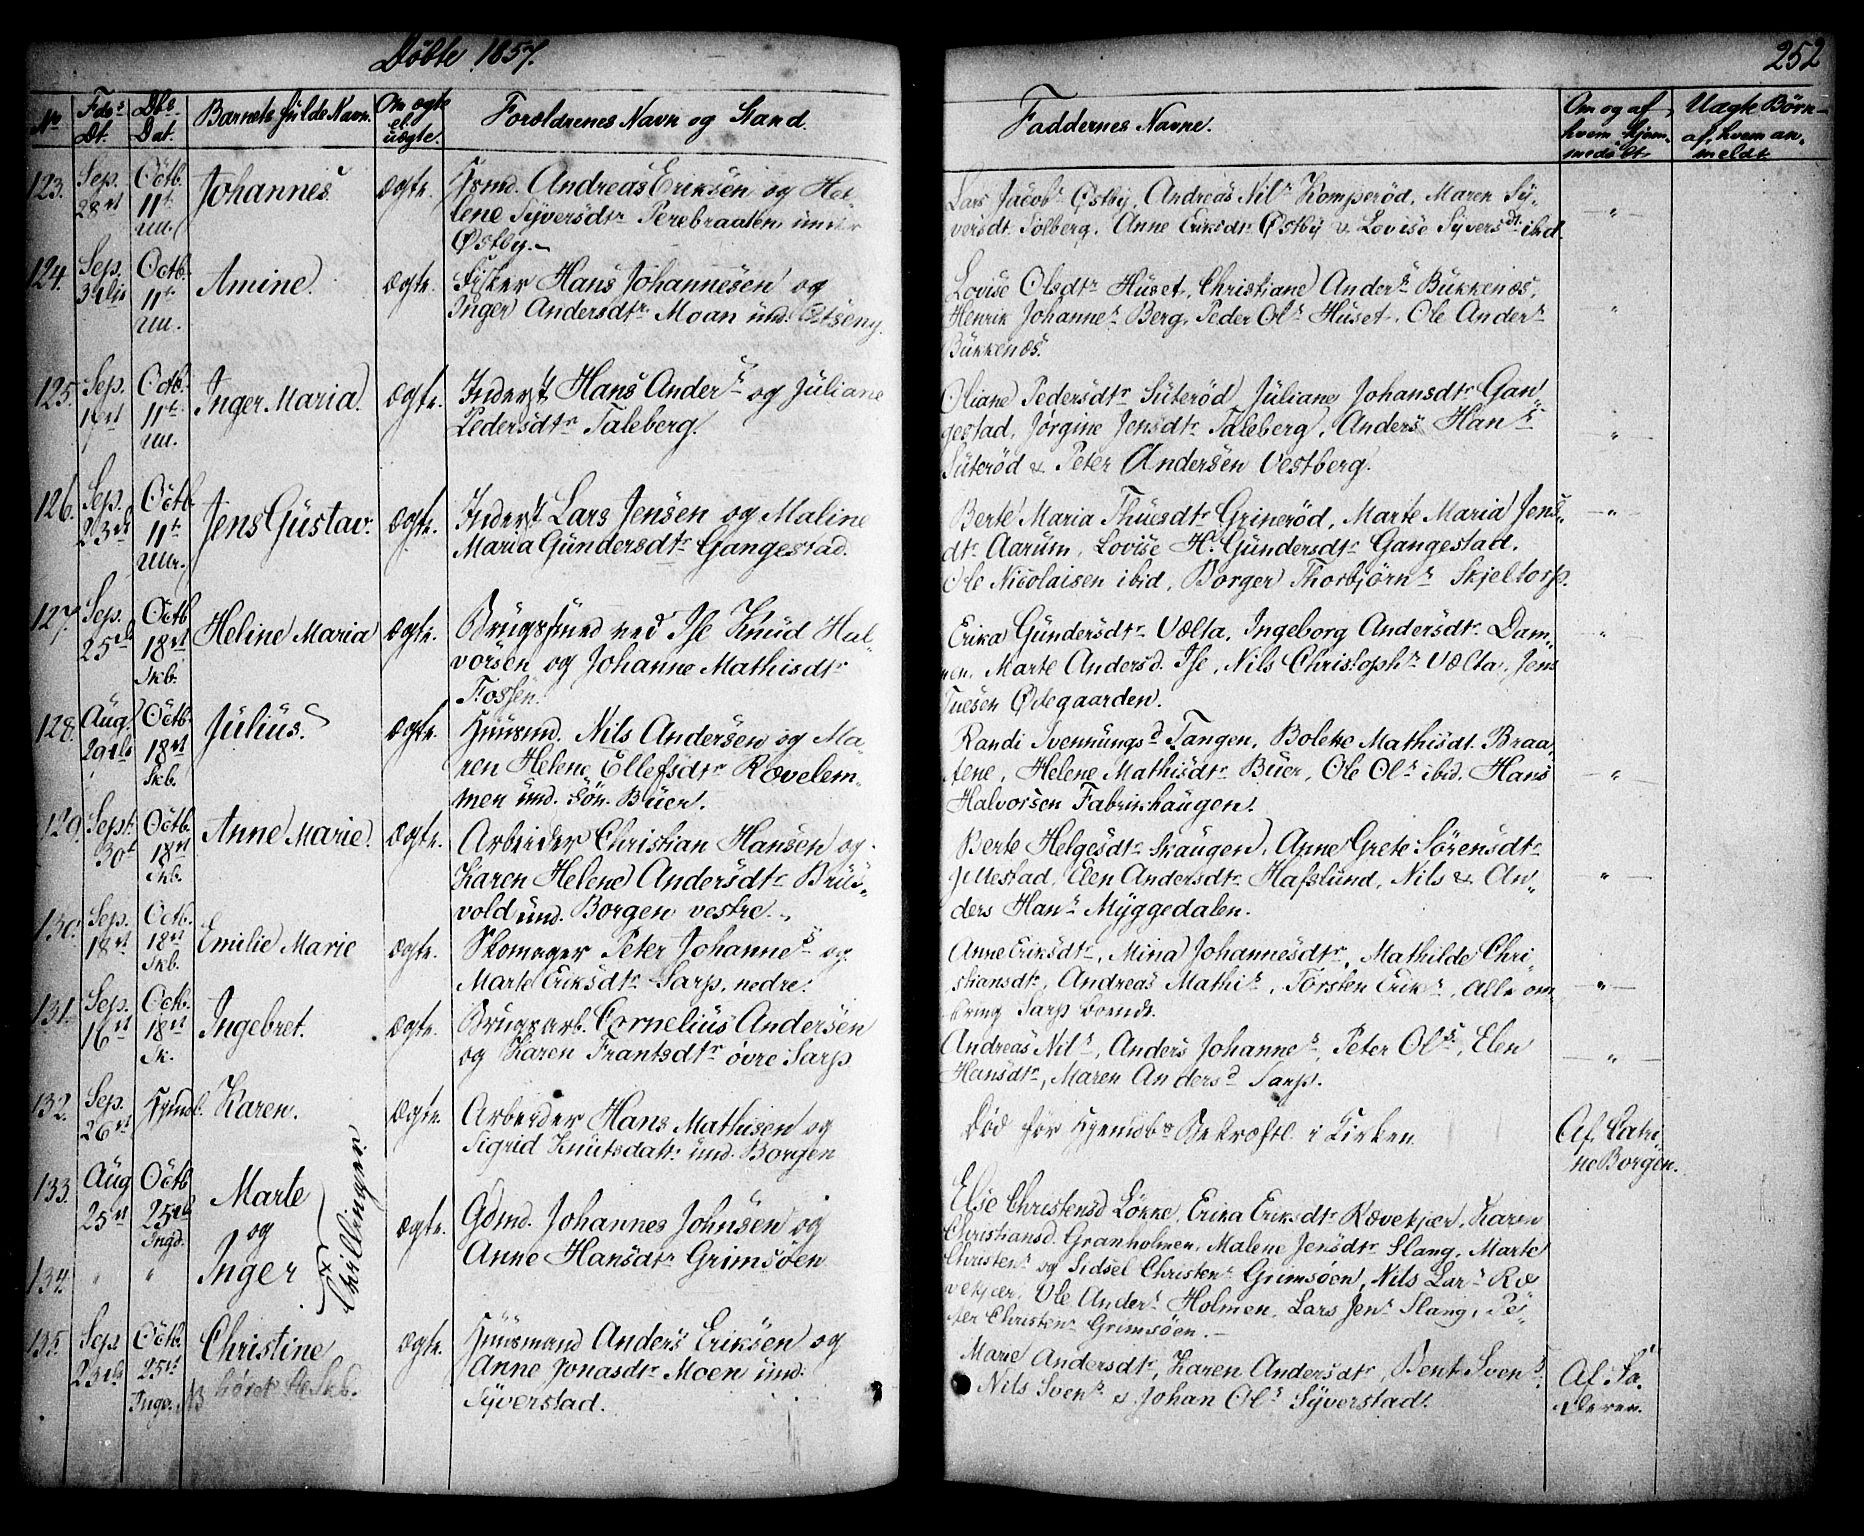 Döbte 1857.
252
No
Fds. Dt.
Dbs. Dat.
Barnets fulde Navn.
Om ægte el uægte.
Forældrenes Navn og Stand.
Faddernes Navne.
Om og af hvem hjem- medöbt
Uægte Börn- af hvem an- meldt
123. Sep. 28 Octb. 11t. Johannes ægte. Husmd. Andreas Eriksen og He-
lene Syversdtr Perebraaten, under
Østby.
Lars Jacobs Østby, Andreas Nils Komperöd, Maren Sy-
versdt Solberg, Anne Eriksdtr Østby & Lovise Syversdt. ibid.
124. Sep. Octb. 11t. Amine. ægte. Fisker Hans Johannesen og
Inger Andersdtr. Moan und.
Lovise Olsdtr Huset, Christiane Anders Bukkenæs,
Henrik Johannes Berg, Peder Ols Huset, Ole Anders
Bukkenæs.
125. Sep. Octb. 11t. Inger Maria. ægte. Inderst Hans Anders og Juliane
Pedersdtr Taleberg.
Oliane Pedersdtr Suteröd, Juliane Johansdtr Gan-
gestad, Jørgine Jensdtr Taleberg, Anders Hans
Suteröd & Peter Andersen Vestberg.
126. Sep. 23 Octb. 11t. Jens Gustav. ægte. Inderst Lars Jensen og Maline
Maria Gundersdtr Gangestad.
Berte Maria Thuesdtr Grineröd, Marte Maria Jens-
dtr Aarum, Lovise H. Gundersdtr Gangestad.
Ole Nicolaisen ibid, Borger Thorbjörns Skjeltorp.
127. Sep. 25 Octb 18 Skb. Heline Maria ægte. Brugssmed ved Ise Knud Hal-
vorsen og Johanne Mathisdtr
Fossen.
Erika Gundersdtr Vælta, Ingeborg Andersdtr. Dam-
men, Marte Andersd. Ise, Nils Christophs Vælta, Jens
Tuesen Ødegaarden.
128. Aug. 29 Octb. 18 Skb. Julius. ægte. Huusmd. Nils Andersen og Ma-
ren Helene Ellefsdtr Rævelem-
men und. Sön. Buer.
Randi Svennungsd Tangen, Bolette Mathisdt. Braa-
tene, Helene Mathisdtr Buer, Ole Ols ibid. Hans
Halvorsen Fabrikhaugen.
129. Sept. 30t Octb. 18 Skb. Anne Marie. ægte. Arbeider Christian Hansen og
Karen Helene Andersdtr Brus-
vold und. Borgen vestre.
Berte Helgesdtr Skaugen, Anne Grete Sörensdtr
Jellestad, Elen Andersdtr Hafslund, Nils & An-
ders Hans Myggedalen.
130. Sep. 18 Octb. 18 Skb. Emilie Marie ægte. Skomager Peter Johannes og
Marte Eriksdtr Sarp, nedre.
Anne Eriksdtr, Mina Johannesdtr, Mathilde Chri-
stiansdtr, Andreas Mathis, Torsten Eriks, alle om-
kring Sarp boende.
131. Sep. 16 Octb. 18 Sk. Ingebret. ægte. Brugsarb. Cornelius Andersen
og Karen Frantsdtr øvre Sarp
Andreas Nils, Anders Johannes, Peter Ols, Elen
Hansdtr, Maren Andersd Sarp.
132. Sep. 26 Hjmdb. Karen. ægte. Arbeider Hans Mathisen og
Sigrid Knutsdatr und. Borgen
Död för Hjemdbs Bekræftl. i Kirken.
Af Catri-
ne Borgen.
133. Aug 25 Octb 25 Ingd. Marte
og
134. " " Inger
Tvillinger.
ægte. Gdmd. Johannes Johnsen og
Anne Hansdtr Grimsöen
Else Christensd Lökke, Erika Eriksdtr Rævekjær, Karen
Christiansd. Granholmen, Malene Jensdtr Slang, Marte
Christens og Sidsel Christens Grimsöen, Nils Lars Ræ-
vekjær, Ole Anders Holmen, Lars Jens Slang, Pe-
ter Christens Grimsöen.
135. Sep. 23 Octb. 25 Inge. Christine
NB hörer til Skb.
ægte. Huusmand Anders Eriksen og
Anne Jonasdtr Moen und.
Syverstad.
Marie Andersdtr, Karen Andersdtr, Bent Svens,
Nils Svens & Johan Ols Syverstad.
Af Fa-
deren.